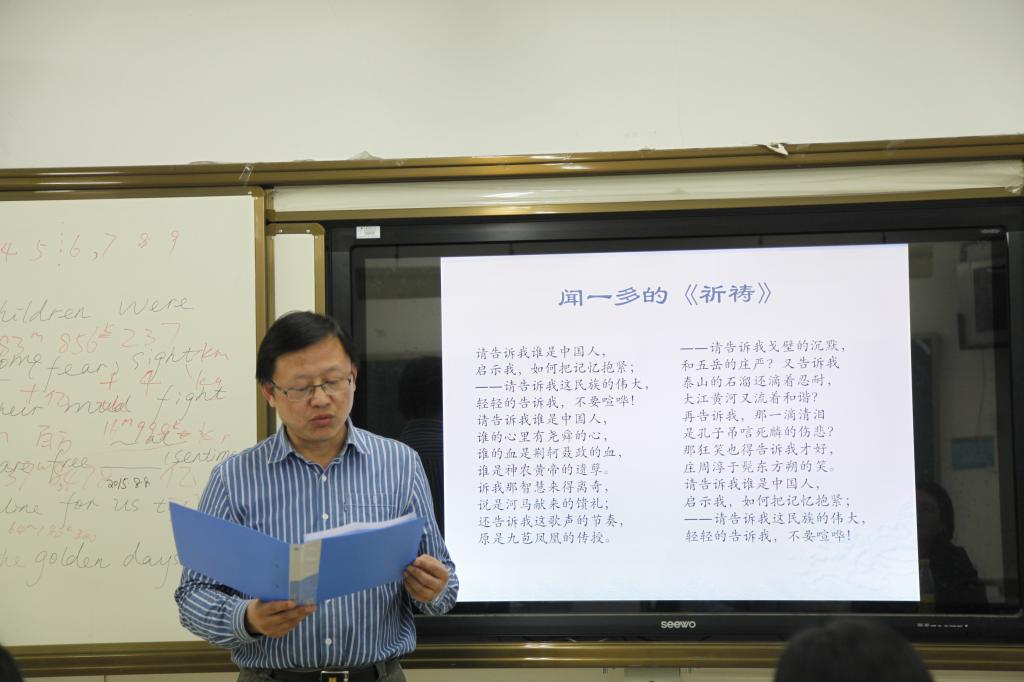 4 5 6,7 8 9
children were
856 237
fear, sight km
fight
are free (sentim
2015.8.9
for us t
the golden days
闻一多的《祈祷》
请告诉我谁是中国人，
启示我，如何把记忆抱紧；
——请告诉我这民族的伟大，
轻轻的告诉我，不要喧哗！
请告诉我谁是中国人，
谁的心里有尧舜的心，
谁的血是荆轲聂政的血，
谁是神农黄帝的遗孽。
诉我那智慧来得离奇，
说是河马献来的馈礼；
还告诉我这歌声的节奏，
原是九苞凤凰的传授。
——请告诉我戈壁的沉默，
和五岳的庄严？又告诉我
泰山的石溜还滴着忍耐，
大江黄河又流着和谐？
再告诉我，那一滴清泪
是孔子吊唁死麟的伤悲？
那狂笑也得告诉我才好，
庄周淳于髡东方朔的笑。
请告诉我谁是中国人，
启示我，如何把记忆抱紧；
——请告诉我这民族的伟大，
轻轻的告诉我，不要喧哗！
seewo